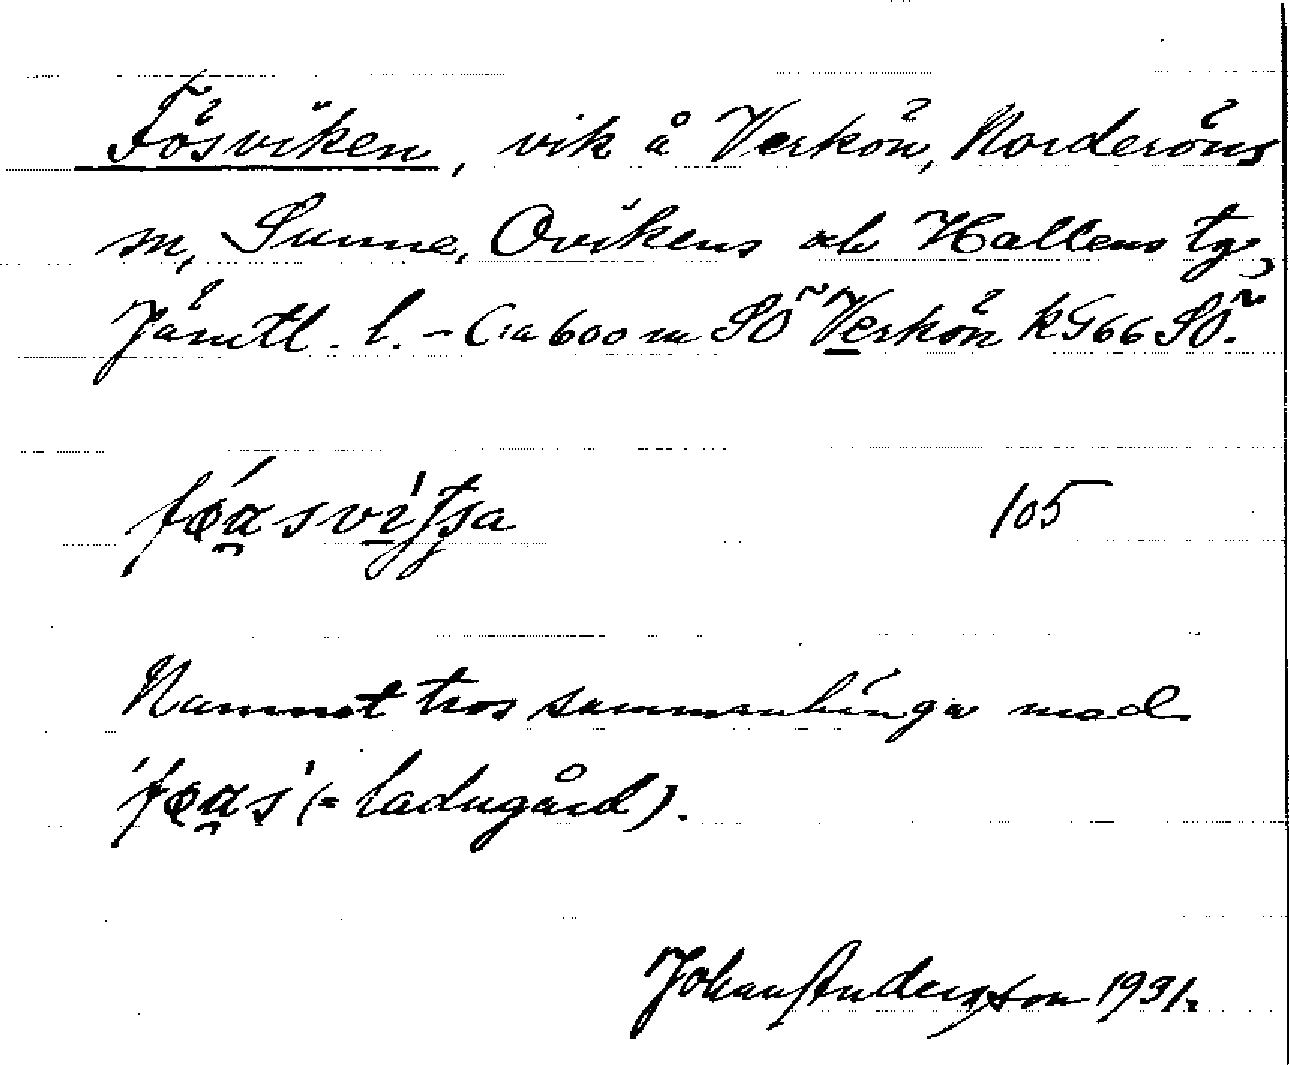 Fösviken, vik å Verkön, Norderöns
sn, Sunne, Ovikens och Hallens tg,
Jämtl. l. - Ca 600 m SÖ Verkön k G66 SÖ.
105
Namnet tros sammanhänga med
(= ladugård).
Johan Andersson 1931.